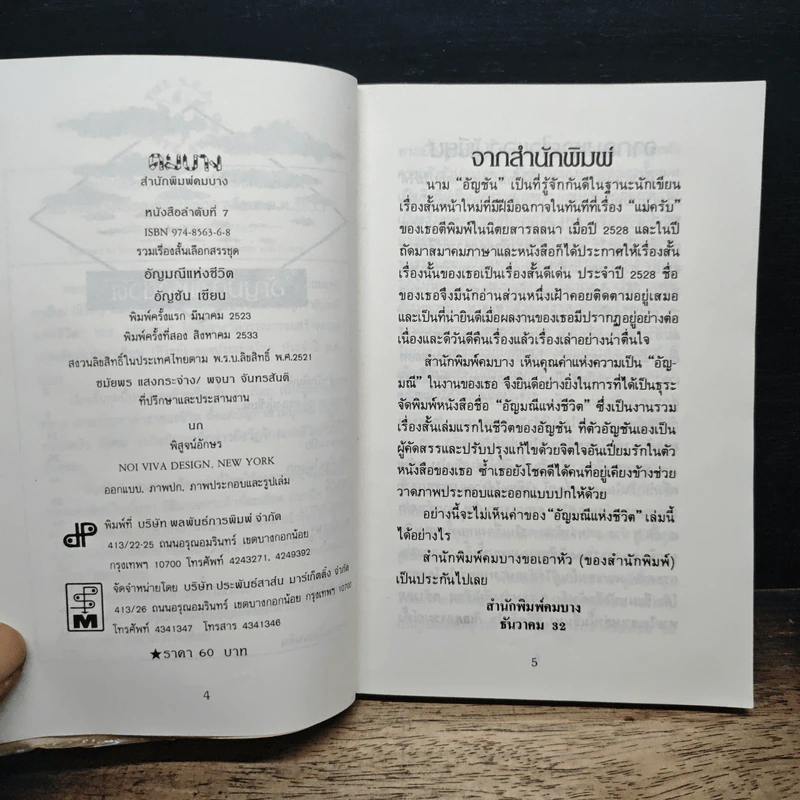 คมบาง
สำนักพิมพ์คมบาง
หนังสือลำดับที่ 7
ISBN 974-8563-6-8
รวมเรื่องสั้นเลือกสรรชุด
อัญมณีแห่งชีวิต
อัญชัน เขียน
พิมพ์ครั้งแรก มีนาคม 2523
พิมพ์ครั้งที่สอง สิงหาคม 2533
สงวนลิขสิทธิ์ในประเทศไทยตาม พ.ร.บ.ลิขสิทธิ์ พ.ศ.2521
ชมัยพร แสงกระจ่าง/ พจนา จันทรสันติ
ที่ปรึกษาและประสานงาน
นก
พิสูจน์อักษร
NOI VIVA DESIGN, NEW YORK
ออกแบบ, ภาพปก, ภาพประกอบและรูปเล่ม
dP พิมพ์ที่ บริษัท พลพันธ์การพิมพ์ จำกัด
413/22-25 ถนนอรุณอมรินทร์ เขตบางกอกน้อย
กรุงเทพฯ 10700 โทรศัพท์ 4243271, 4249392
จัดจำหน่ายโดย บริษัท ประพันธ์สาส์น มาร์เก็ตติ้ง จำกัด
413/26 ถนนอรุณอมรินทร์ เขตบางกอกน้อย กรุงเทพฯ 10700
M โทรศัพท์ 4341347 โทรสาร 4341346
★ราคา 60 บาท
4
จากสำนักพิมพ์
นาม “อัญชัน” เป็นที่รู้จักกันดีในฐานะนักเขียน
เรื่องสั้นหน้าใหม่ที่มีฝีมือฉกาจในทันทีที่เรื่อง “แม่ครับ”
ของเธอตีพิมพ์ในนิตยสารลลนา เมื่อปี 2528 และในปี
ถัดมาสมาคมภาษาและหนังสือก็ได้ประกาศให้เรื่องสั้น
เรื่องนั้นของเธอเป็นเรื่องสั้นดีเด่น ประจำปี 2528 ชื่อ
ของเธอจึงมีนักอ่านส่วนหนึ่งเฝ้าคอยติดตามอยู่เสมอ
และเป็นที่น่ายินดีเมื่อผลงานของเธอมีปรากฏอยู่อย่างต่อ
เนื่องและดีวันดีคืนเรื่องแล้วเรื่องเล่าอย่างน่าตื่นใจ
สำนักพิมพ์คมบาง เห็นคุณค่าแห่งความเป็น “อัญ-
มณี” ในงานของเธอ จึงยินดีอย่างยิ่งในการที่ได้เป็นธุระ
จัดพิมพ์หนังสือชื่อ “อัญมณีแห่งชีวิต” ซึ่งเป็นงานรวม
เรื่องสั้นเล่มแรกในชีวิตของอัญชัน ที่ตัวอัญชันเองเป็น
ผู้คัดสรรและปรับปรุงแก้ไขด้วยจิตใจอันเปี่ยมรักในตัว
หนังสือของเธอ ซ้ำเธอยังโชคดีได้คนที่อยู่เคียงข้างช่วย
วาดภาพประกอบและออกแบบปกให้ด้วย
อย่างนี้จะไม่เห็นค่าของ“อัญมณีแห่งชีวิต” เล่มนี้
ได้อย่างไร
สำนักพิมพ์คมบางขอเอาหัว (ของสำนักพิมพ์)
เป็นประกันไปเลย
สำนักพิมพ์คมบาง
ธันวาคม 32
5